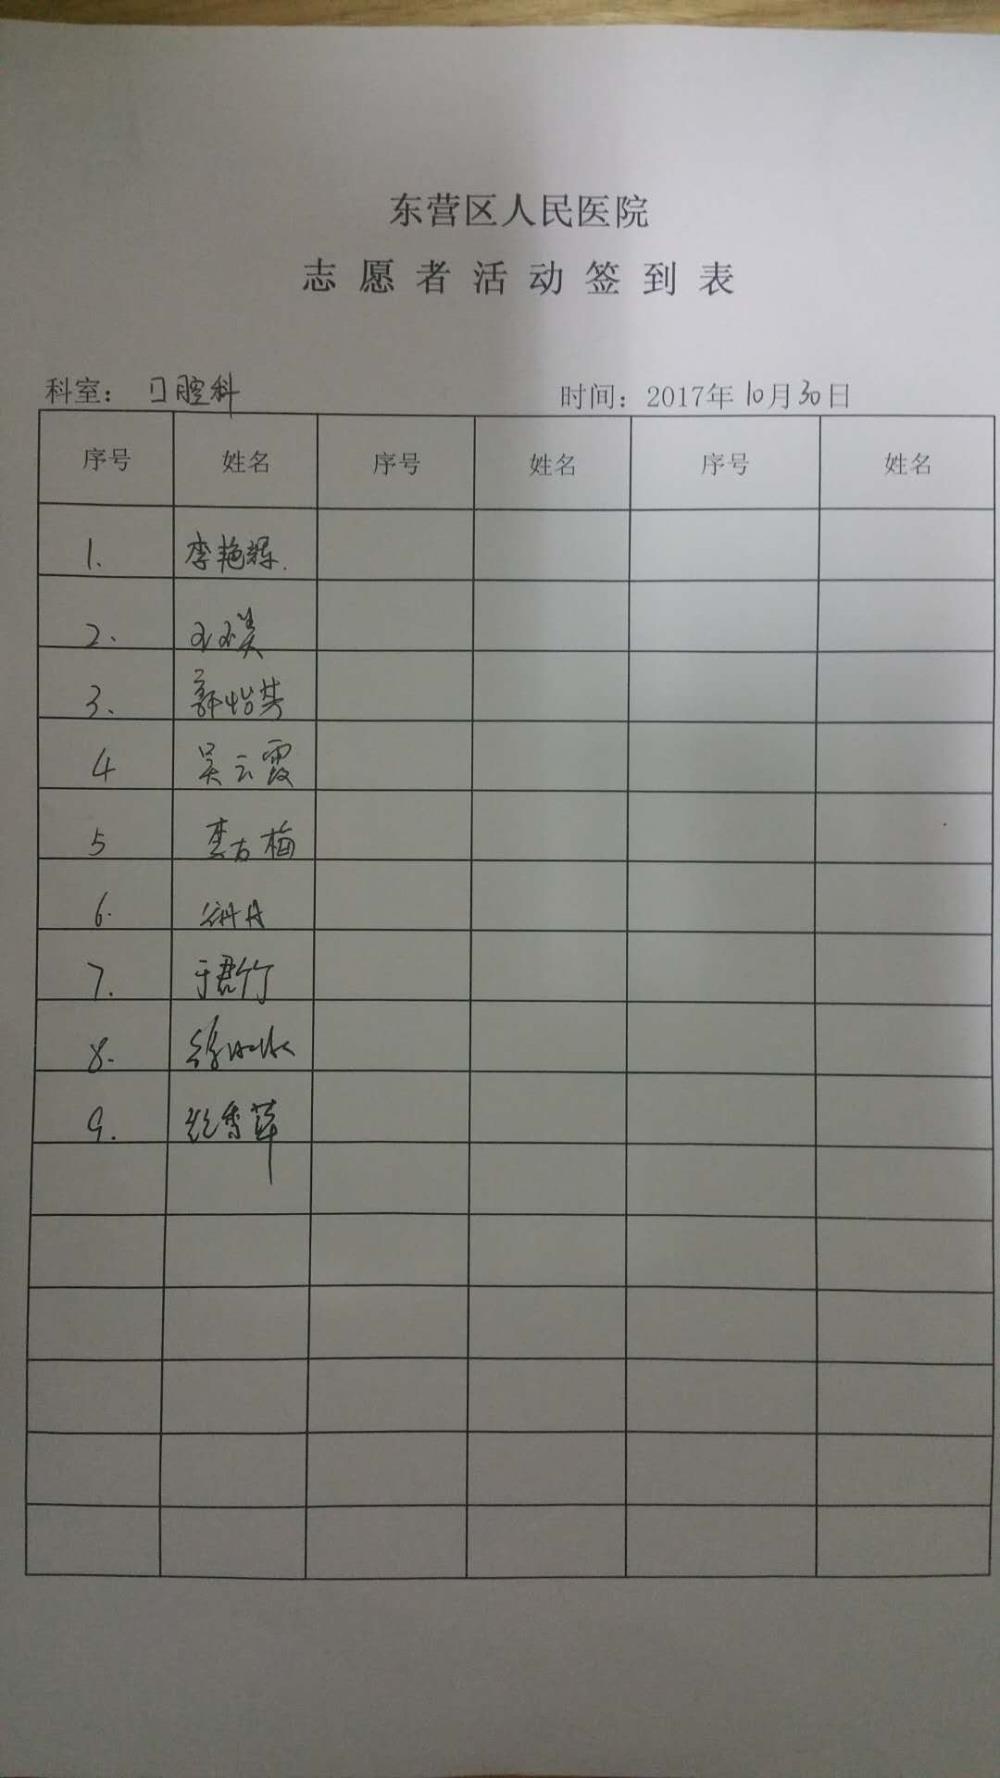 东营区人民医院
志愿者活动签到表
科室： 口腔科 时间：2017年10月30日
序号 姓名 序号 姓名 序号 姓名
1. 李艳辉.
2.
3、
4 吴云霞
5 李古梅
6.
7. 于君竹
8.
9. 香萍